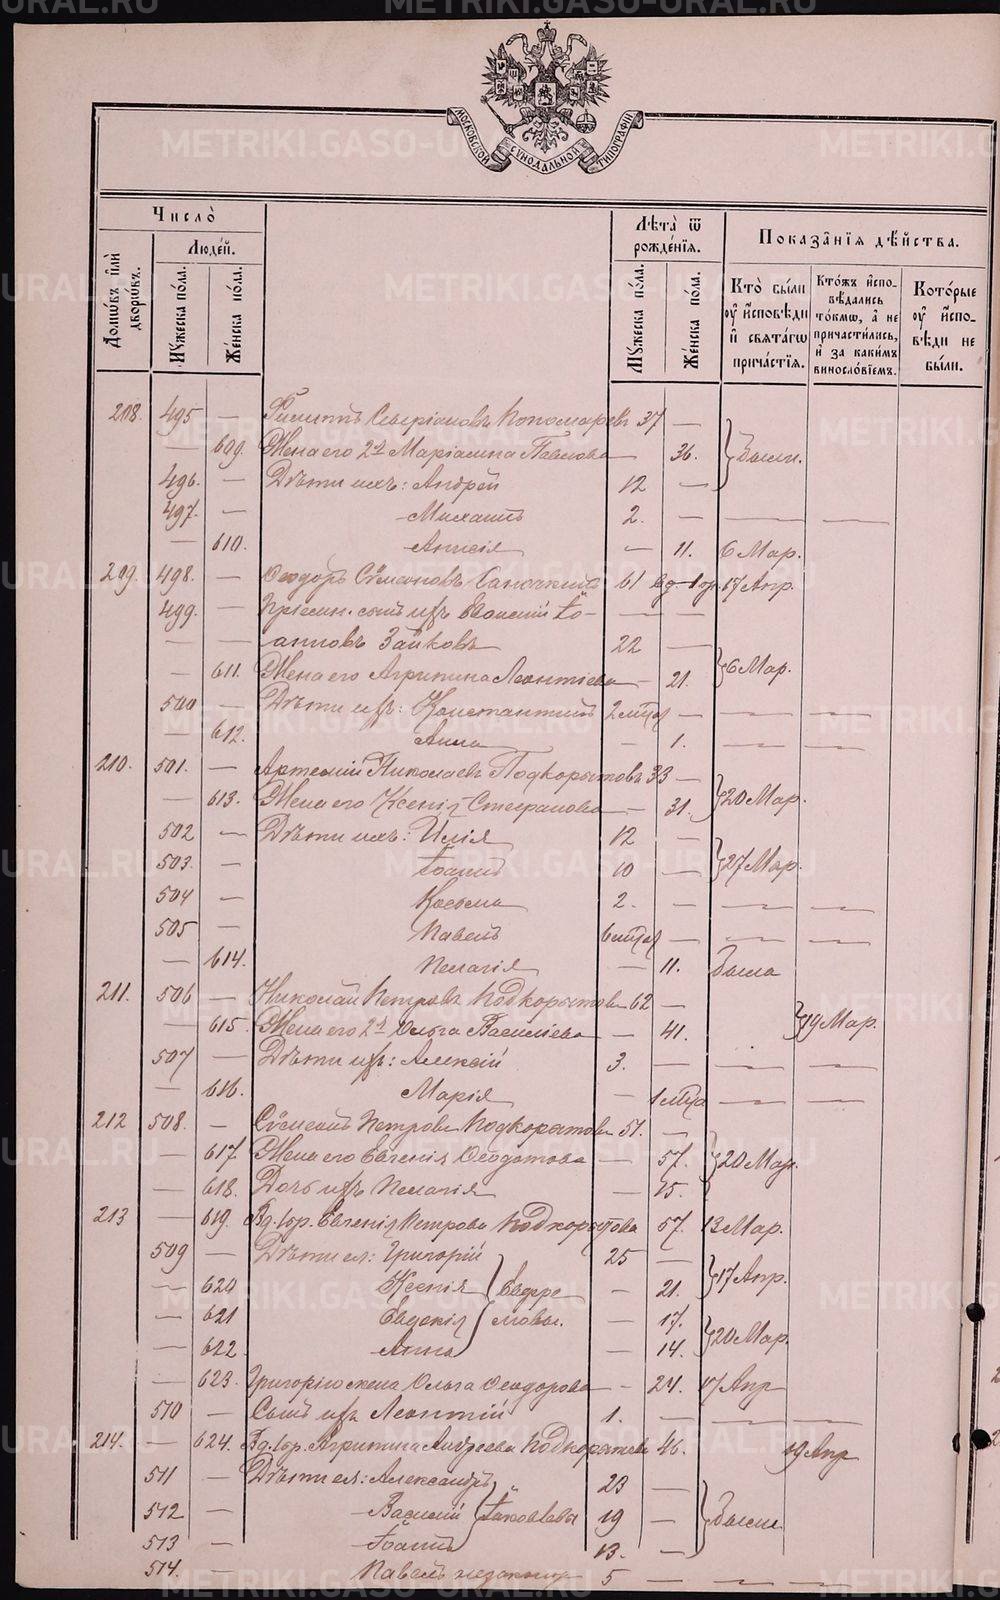 METRIKI.GASO-URAL.RU
МОСКОВСКОЙ СѴНОДАЛЬНОЙ ТИПОГРАФІИ
Число̀
Людей.
Домѡвъ и҆лѝ дворѡвъ.
Мꙋжеска по́ла.
Же́нска по́ла.
Лѣ́та ѿ рожде́нїѧ.
Мꙋжеска по́ла.
Же́нска по́ла.
Показа̑нїѧ дѣ́йства.
Кто̀ бы́ли ᲂу҆ и҆сповѣди и҆ свѧта́гѡ прича́стїѧ.
Кто́жъ и҆спо-вѣ́дались то́кмѡ, а҆ не причасти́лись, и҆ за каки́мъ винословїемъ.
Кото́рые ᲂу҆ и҆спо-вѣди не бы́ли.
208. 495 — Филиппъ Северіановъ Пономаревъ 37 —
— 609. Жена его 2я Маріамна Павлова — 36. Были.
496. — Дѣти ихъ: Андрей 12 —
497. — Михаилъ 2. — — —
— 610. Анисія — 11. 6 Мар.
209. 498. — Ѳеодоръ Сѵмеоновъ 61 17 Апр.
499. — сынъ ихъ Іо- — —
— — анновъ Зайковъ 22 —
— 611. Жена его Агрипина Леонтіева — 21. 6 Мар.
500 — Дѣти ихъ: Константинъ 2 мѣца — — —
— 612. Анна — 1. — —
210. 501. — Артемій Николаевъ Подкорытовъ 33 —
— 613. Жена его Ксенія Стефанова — 31. 20 Мар.
502 — Дѣти ихъ: Илія 12 —
503. — Іоаннъ 10 — 27 Мар.
504 — Косьма 2. — — —
505 — Павелъ 6 мѣца — — —
— 614. Пелагія — 11. была
211. 506 — Николай Петровъ Подкорытовъ 62 —
— 615. Жена его 2я Ольга Василіева — 41. 19 Мар.
507 — Дѣти ихъ: Алексій 3. — — —
— 616. Марія — 1 мѣца — —
212 508. — Сѵмеонъ Петровъ Подкорытовъ 51. —
— 617. Жена его Евгенія Ѳеодотова — 57. 20 Мар.
— 618. Дочь ихъ Пелагія — 15.
213 — 619. Вд. Евгенія Петрова Подкорытова 57. 13 Мар.
509 — Дѣти ея: Григорій 25 —
— 620 Ксенія Ефре- — 21. 17 Апр.
— 621 Евдокія мовы. — 17.
— 622. Анна — 14. 20 Мар.
— 623. Григорію жена Ольга Ѳеодорова — 24. 17 Апр
510 — Сынъ ихъ Леонтій 1. — — —
214. — 624. Вд. Агрипина Андреева Подкорытова 46. 19 Апр
511 — Дѣти ея: Александръ 23 —
512 — Василій Іаковлевы 19 — были
513 — Іоаннъ 13. —
514. — Павелъ незакон 5 — — —